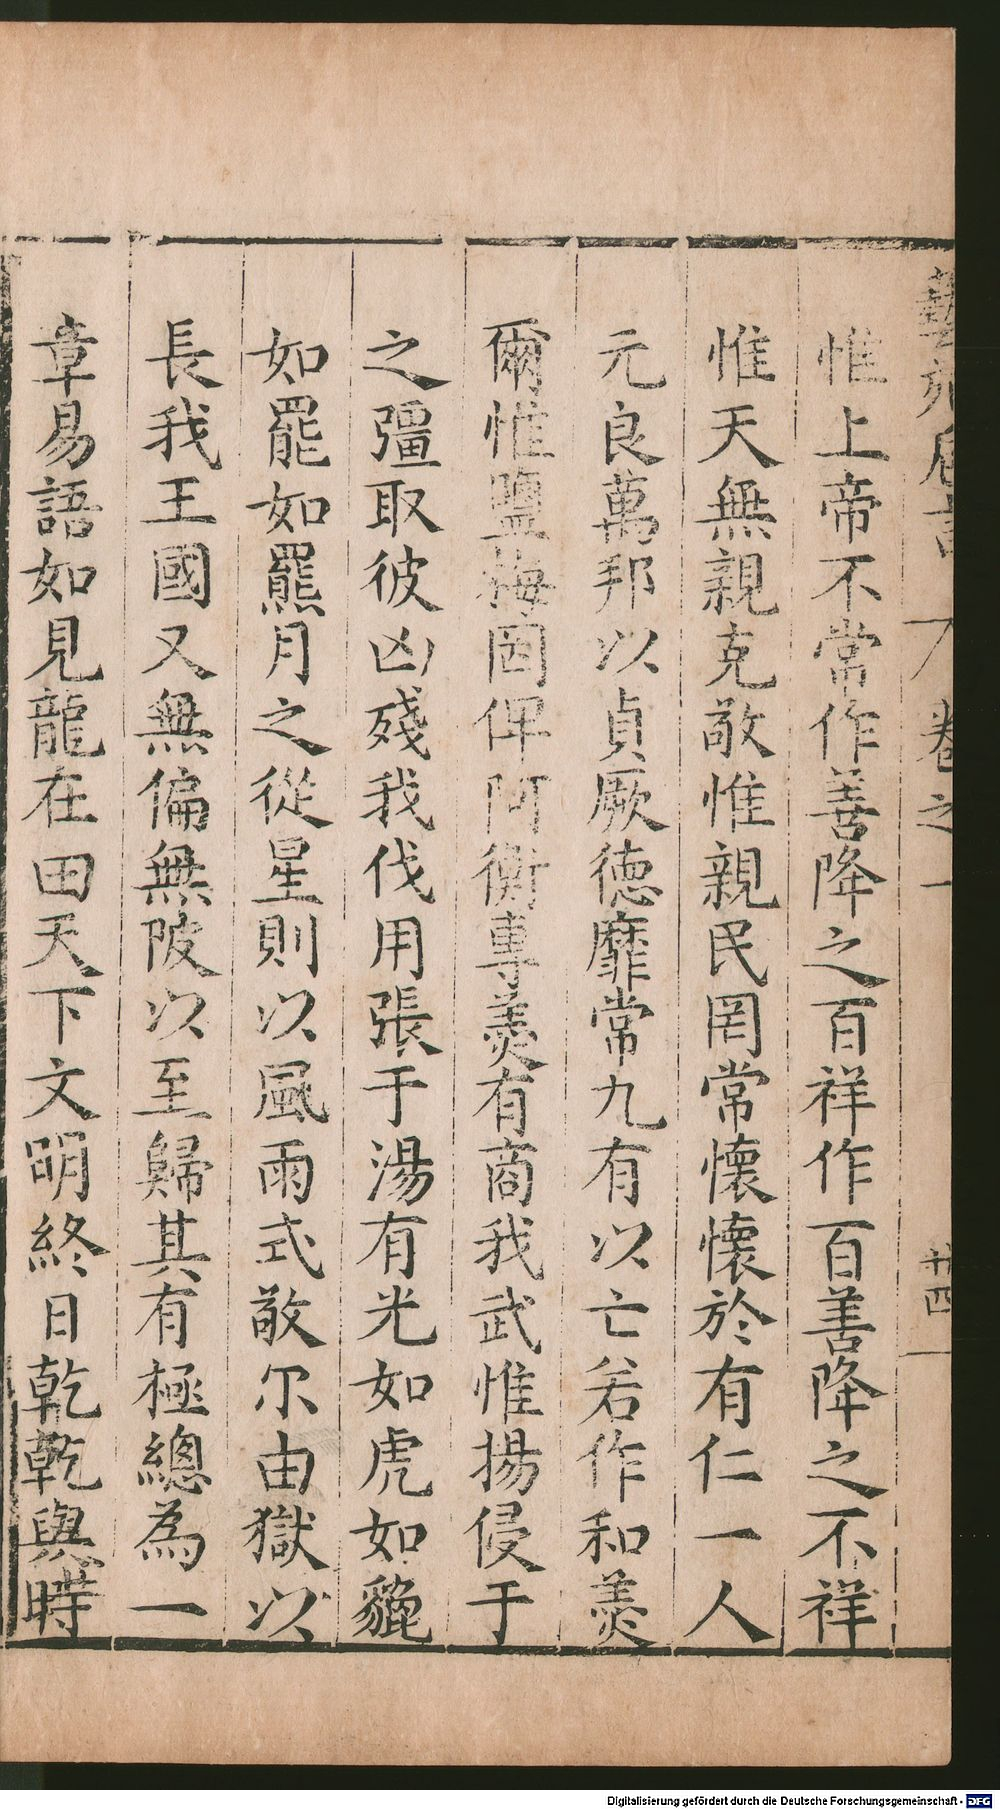 藝苑卮言 卷之一 廿四
惟上帝不常作善降之百祥作百善降之不祥
惟天無親克敬惟親民罔常懷懷於有仁一人
元良萬邦以貞厥德靡常九有以亡若作和羹
爾惟鹽梅罔俾阿衡專羙有商我武惟揚侵于
之彊取彼凶殘我伐用張于湯有光如虎如貔
如羆如羆月之從星則以風雨式敬尔由獄以
長我王國又無偏無陂以至歸其有極總為一
章易語如見龍在田天下文明終日乾乾與時
Digitalisierung gefördert durch die Deutsche Forschungsgemeinschaft - DFG